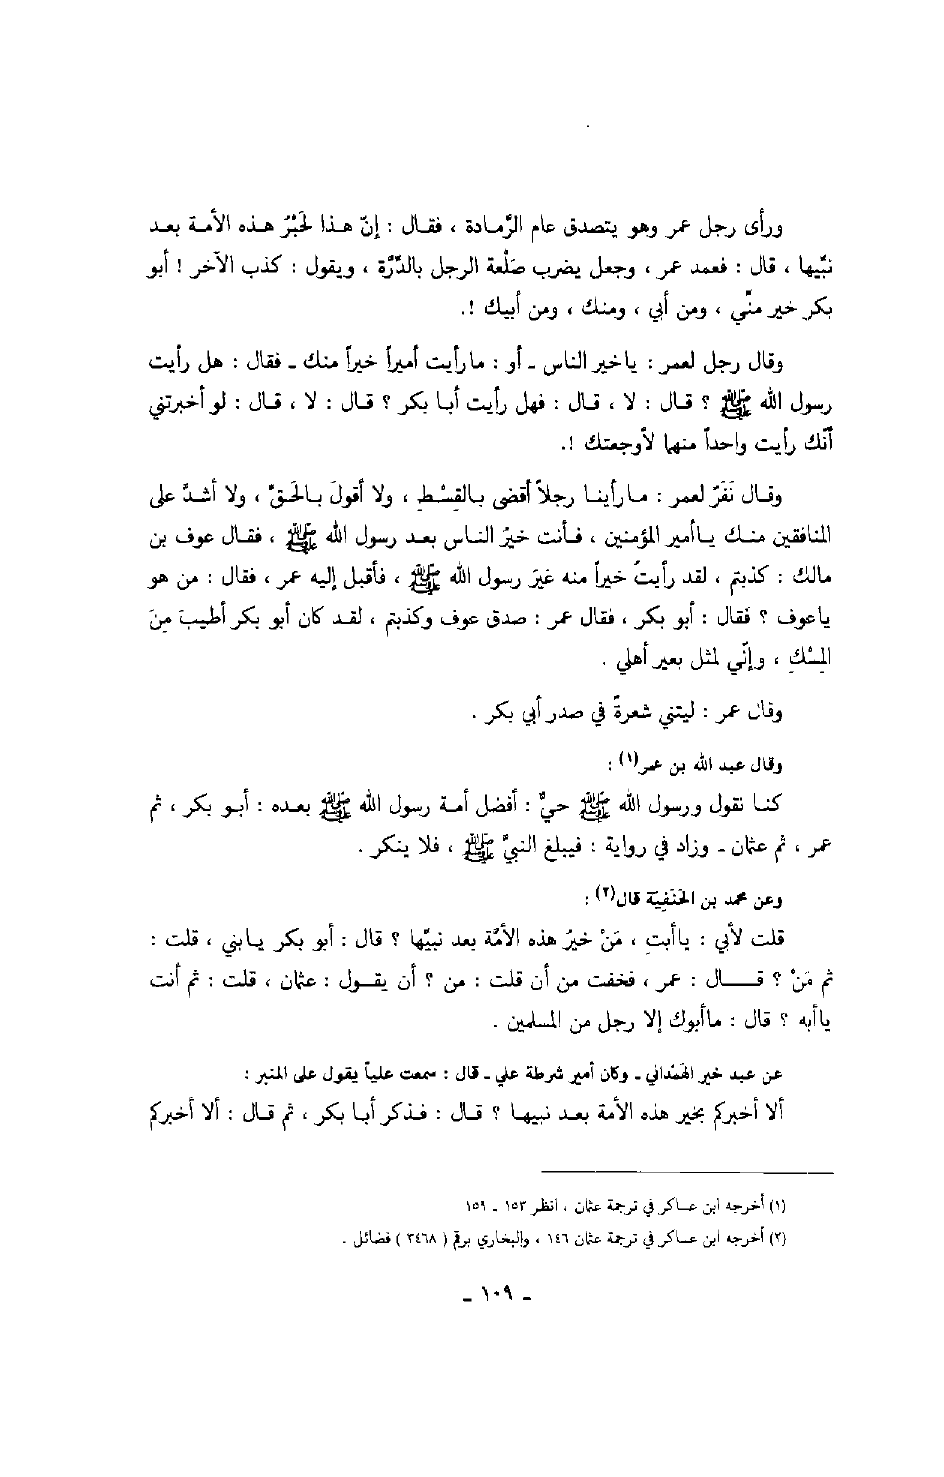 ورأى رجل عمر وهو يتصدق عام الرَّمادة ، فقال : إنّ هذا لَحَبْرُ هذه الأمة بعد
نبيِّها ، قال : فعمد عمر ، وجعل يضرب صَلْعة الرجل بالدِّرَّة ، ويقول : كذب الآخر ! أبو
بكر خير منِّي ، ومن أبي ، ومنك ، ومن أبيك !.
وقال رجل لعمر : ياخير الناس ـ أو : مارأيت أميراً خيراً منك ـ فقال : هل رأيت
رسول الله ﷺ ؟ قال : لا ، قال : فهل رأيت أبا بكر ؟ قال : لا ، قال : لو أخبرتني
أنّك رأيت واحداً منهما لأوجعتك !.
وقال نَفَرٌ لعمر : مارأينا رجلاً أقضى بالقِسْطِ ، ولا أقولَ بالحَقّ ، ولا أشدَّ على
المنافقين منك ياأمير المؤمنين ، فأنت خيرُ الناس بعد رسول الله ﷺ ، فقال عوف بن
مالك : كذبتم ، لقد رأيتُ خيراً منه غيرَ رسول الله ﷺ ، فأقبل إليه عمر ، فقال : من هو
ياعوف ؟ فقال : أبو بكر ، فقال عمر : صدق عوف وكذبتم ، لقد كان أبو بكر أطيبَ مِنَ
المِسْكِ ، وإنّي لمثل بعير أهلي .
وقال عمر : ليتني شعرةً في صدر أبي بكر .
وقال عبد الله بن عمر(١) :
كنا نقول ورسول الله ﷺ حيٌّ : أفضل أمة رسول الله ﷺ بعده : أبو بكر ، ثم
عمر ، ثم عثمان ـ وزاد في رواية : فيبلغ النبيَّ ﷺ ، فلا ينكر .
وعن محمد بن الحَنَفِيّة قال(٢) :
قلت لأبي : ياأبتِ ، مَنْ خيرُ هذه الأمَّة بعد نبيِّها ؟ قال : أبو بكر يابني ، قلت :
ثم مَنْ ؟ قال : عمر ، فخفت من أن قلت : من ؟ أن يقول : عثمان ، قلت : ثم أنت
ياأبه ؟ قال : ماأبوك إلا رجل من المسلمين .
عن عبد خير الهَمْداني ـ وكان أمير شرطة علي ـ قال : سمعت علياً يقول على المنبر :
ألا أخبركم بخير هذه الأمة بعد نبيها ؟ قال : فذكر أبا بكر ، ثم قال : ألا أخبركم
(١) أخرجه ابن عساكر في ترجمة عثمان ، انظر ١٥٣ ـ ١٥٩
(٢) أخرجه ابن عساكر في ترجمة عثمان ١٤٦ ، والبخاري برقم ( ٣٤٦٨ ) فضائل .
ـ ١٠٩ ـ